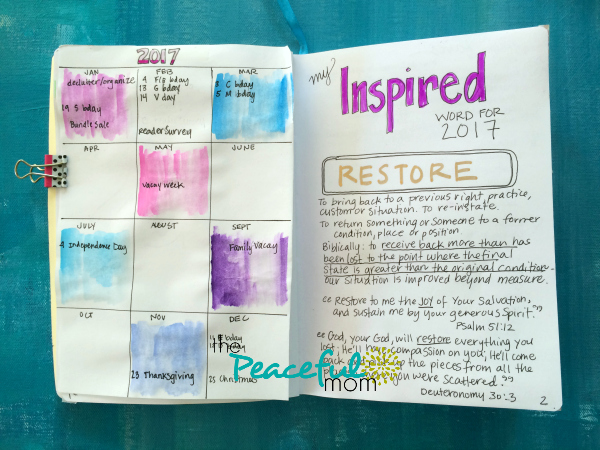 2017
JAN
declutter/organize
19 S bday
Bundle Sale
FEB
4 F/B bday
13 G bday
14 V day
Reader Survey
MAR
3 C bday
5 M bday
APR
MAY
Vacay week
JUNE
JULY
4 Independence Day
AUGUST
SEPT
Family Vacay
OCT
NOV
23 Thanksgiving
DEC
bday
25 Christmas
the
Peaceful
mom
my
Inspired
WORD FOR
2017
RESTORE
To bring back to a previous right, practice,
custom or situation. To re-instate.
To return something or someone to a former
condition, place or position.
Biblically: to receive back more than has
been lost to the point where the final
state is greater than the original condition-
our situation is improved beyond measure.
"Restore to me the Joy of Your Salvation,
and sustain me by your generous Spirit."
Psalm 51:12
"God, your God, will restore everything you
lost; He'll have compassion on you; He'll come
back and pick up the pieces from all the
places where you were scattered."
Deuteronomy 30:3
2